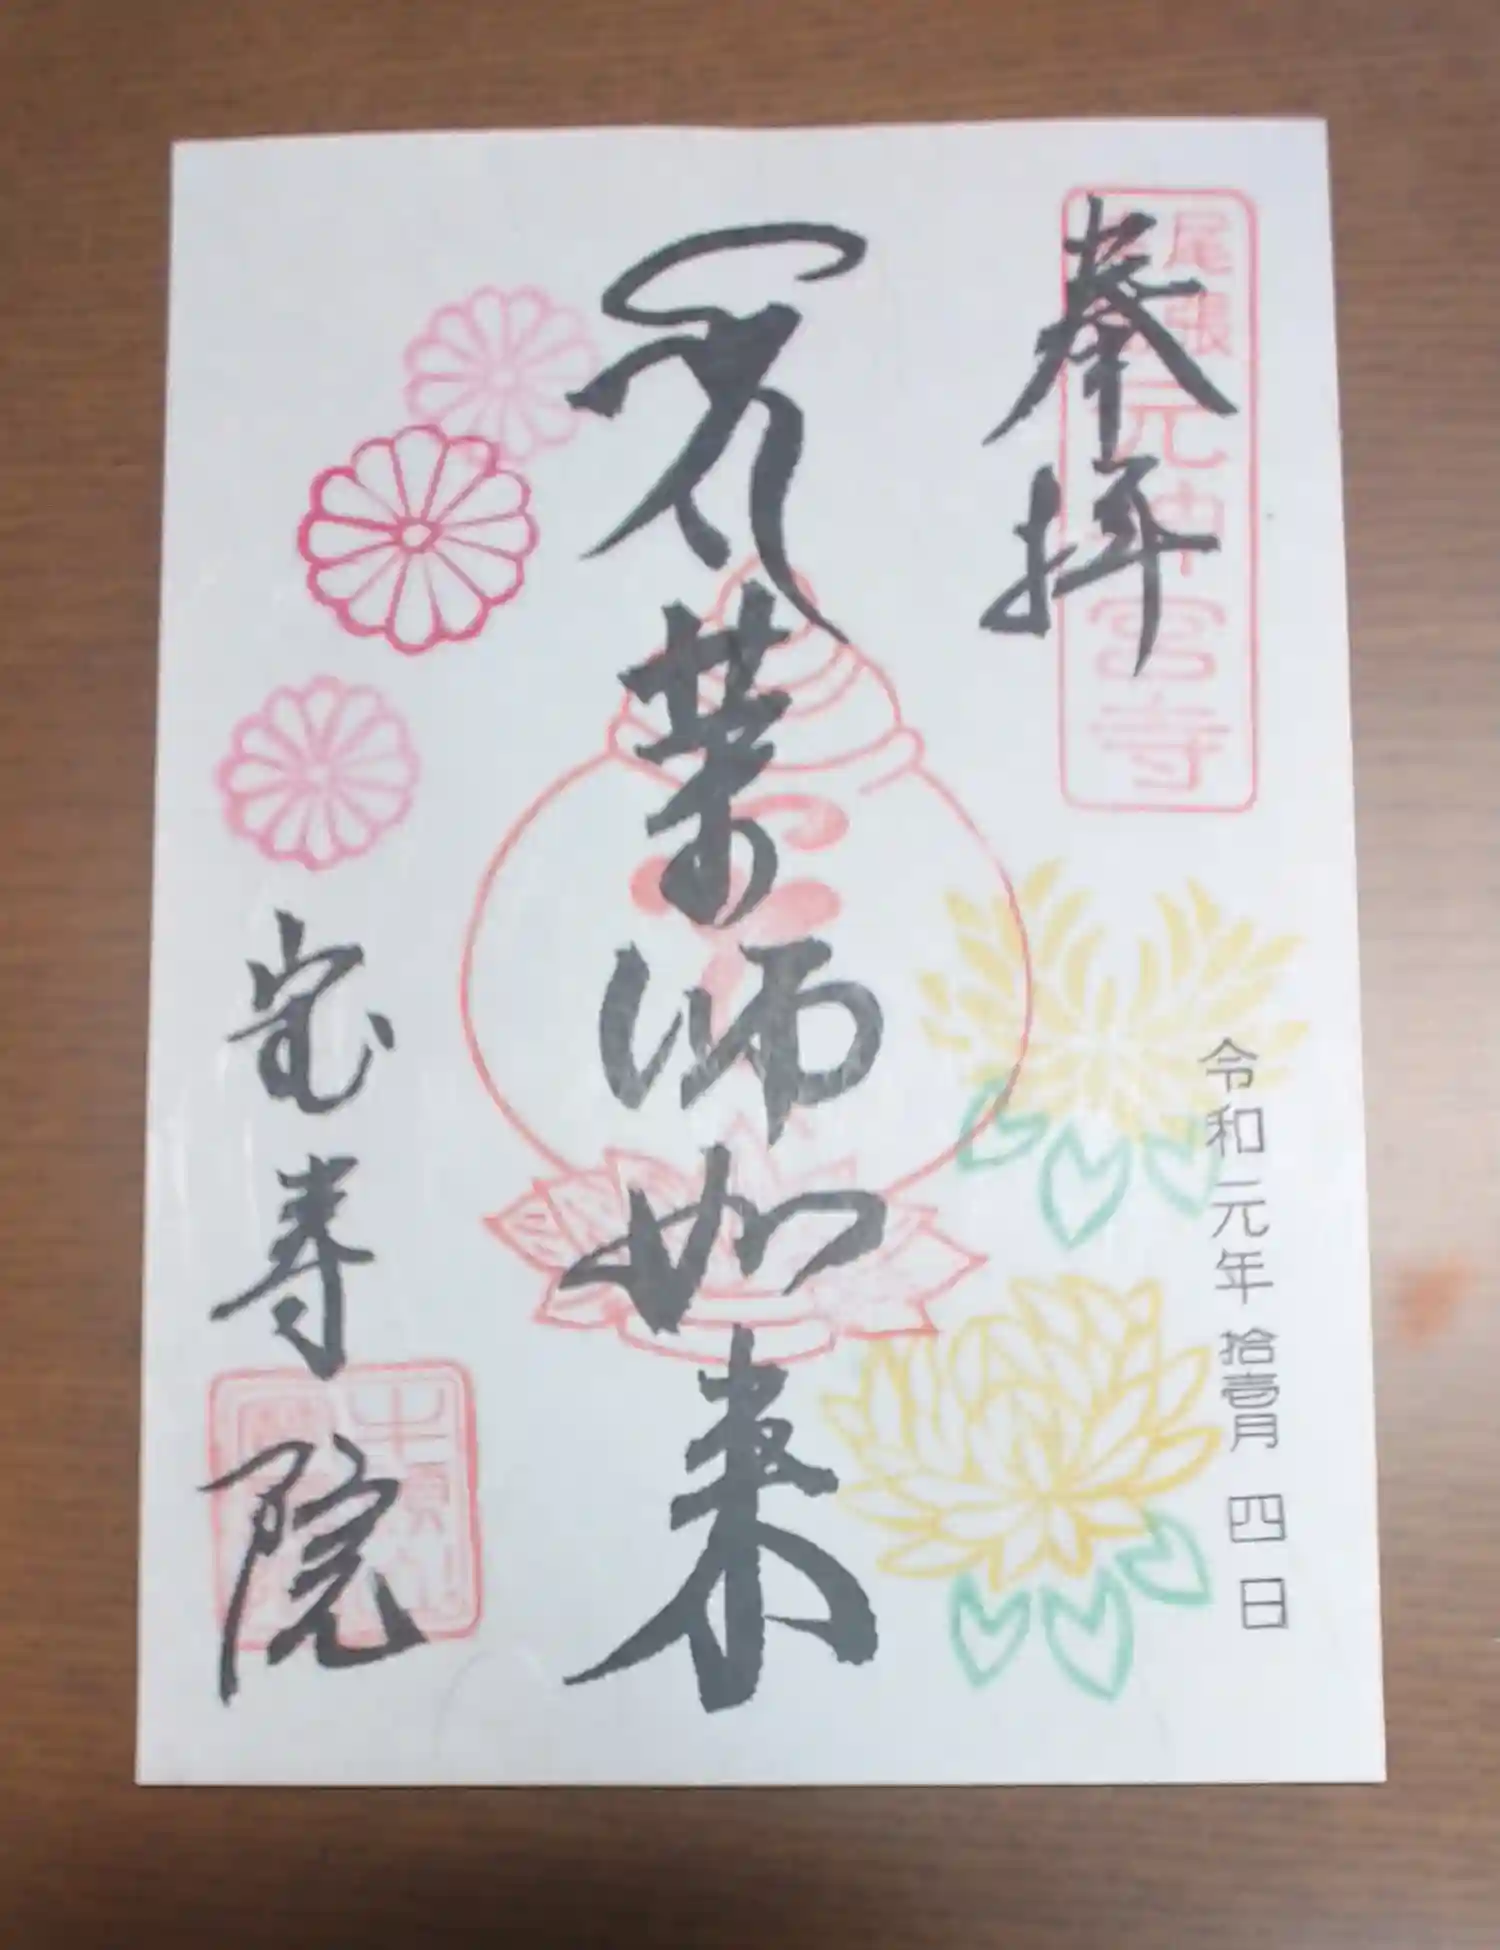 奉拝
尾張元神宮寺
令和元年拾壹月四日
薬師如来
宝寿院